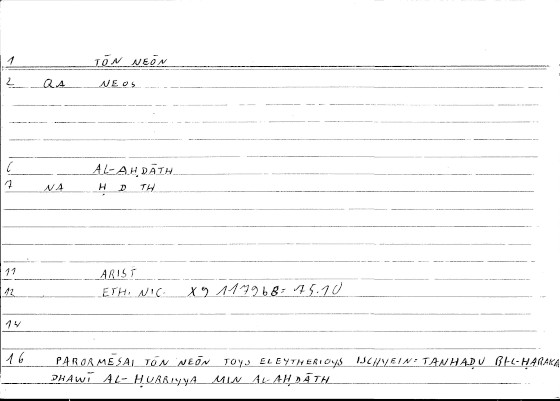 1 TŌN NEŌN
2 QA NEOS
6 AL-AḤDĀTH
7 NA Ḥ D TH
11 ARIST
12 ETH. NIC. X 9 1179b8 = 75.10
14
16 PARORMĒSAI TŌN NEŌN TOYS ELEYTHERIOYS ISCHYEIN = TANHAḌU BI-L-ḤARAKA
DHAWĪ AL-ḤURRIYYA MIN AL-AḤDĀTH